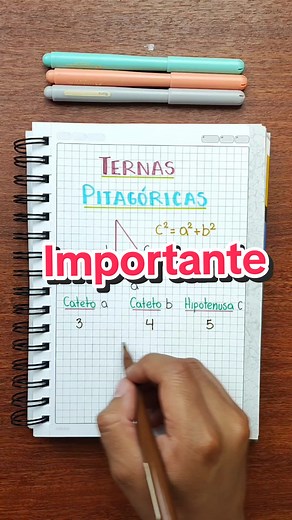 TERNAS
PITAGÓRICAS
c² = a² + b²
Importante
a
Cateto a Cateto b Hipotenusa c
3 4 5